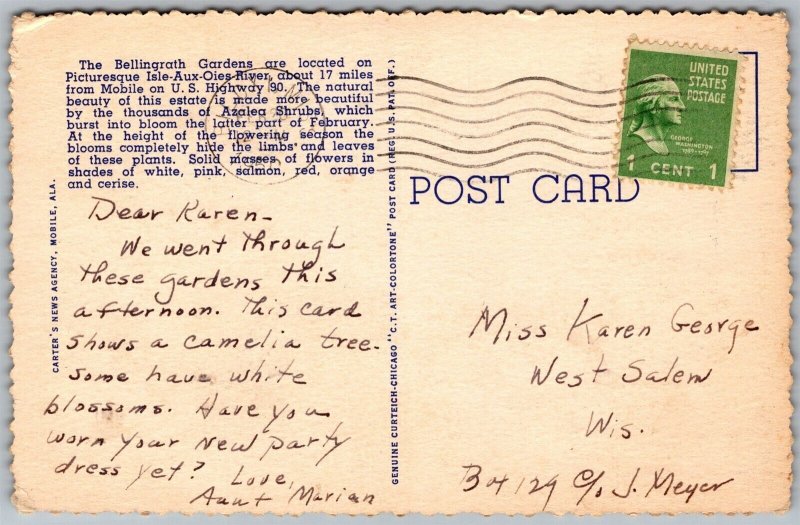 The Bellingrath Gardens are located on
Picturesque Isle-Aux-Oies River, about 17 miles
from Mobile on U. S. Highway 90. The natural
beauty of this estate is made more beautiful
by the thousands of Azalea Shrubs, which
burst into bloom the latter part of February.
At the height of the flowering season the
blooms completely hide the limbs and leaves
of these plants. Solid masses of flowers in
shades of white, pink, salmon, red, orange
and cerise.
CARTER'S NEWS AGENCY, MOBILE, ALA.
Dear Karen-
We went through
these gardens this
afternoon. This card
shows a camelia tree-
some have white
blossoms. Have you
worn your new party
dress yet?
Love,
Aunt Marian
GENUINE CURTEICH-CHICAGO "C. T. ART-COLORTONE" POST CARD (REG. U. S. PAT. OFF.)
POST CARD
UNITED
STATES
POSTAGE
GEORGE
WASHINGTON
1789-1797
1 CENT 1
Miss Karen George
West Salem
Wis.
Box 129 c/o J. Meyer